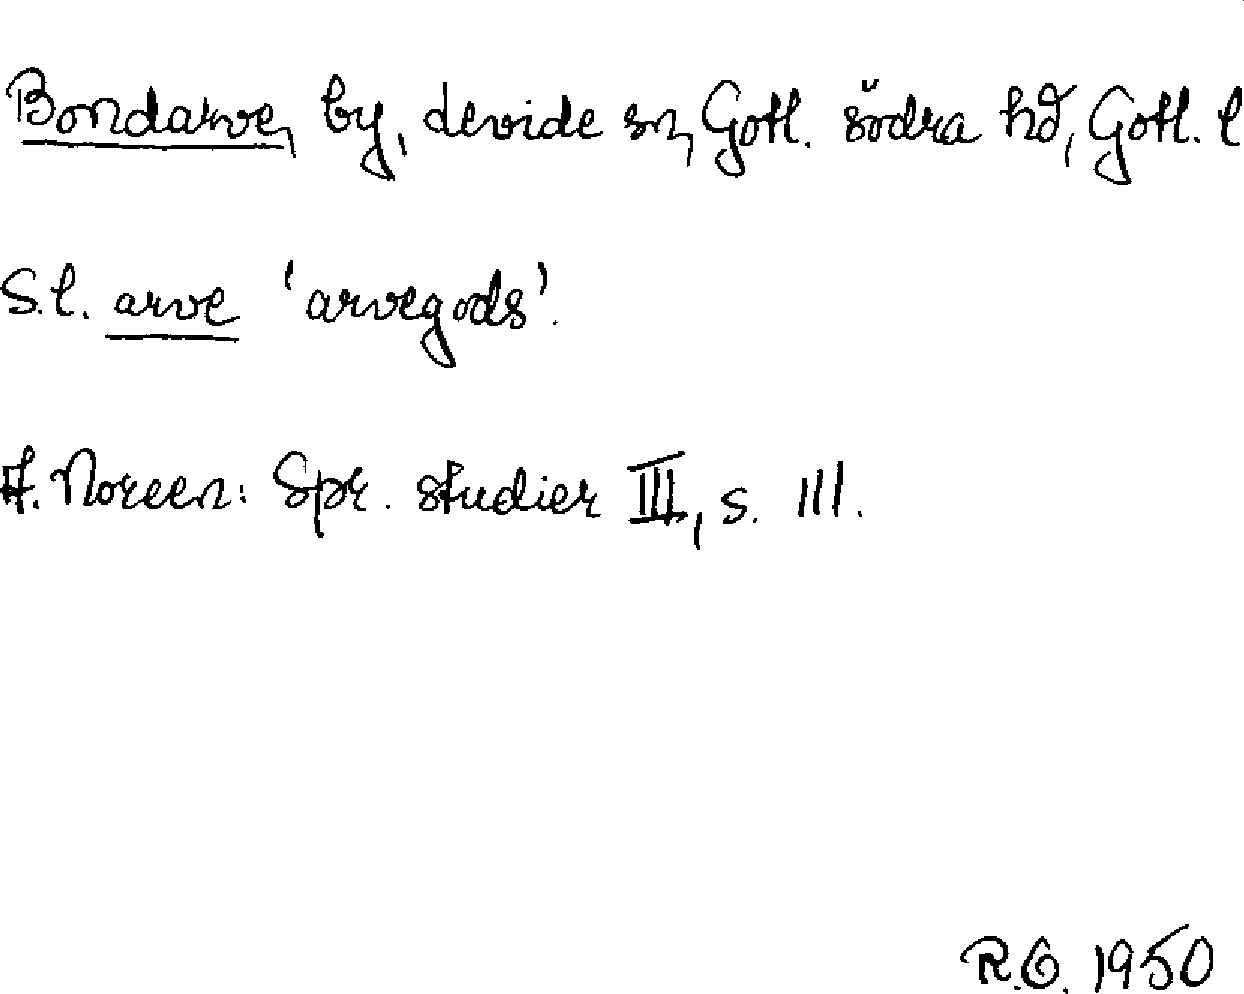 Bondarve, by, Levide sn, Gotl. södra hd, Gotl. l
S.l. arve 'arvegods'.
A. Noreen: Spr. studier III, s. 111.
R.O. 1950